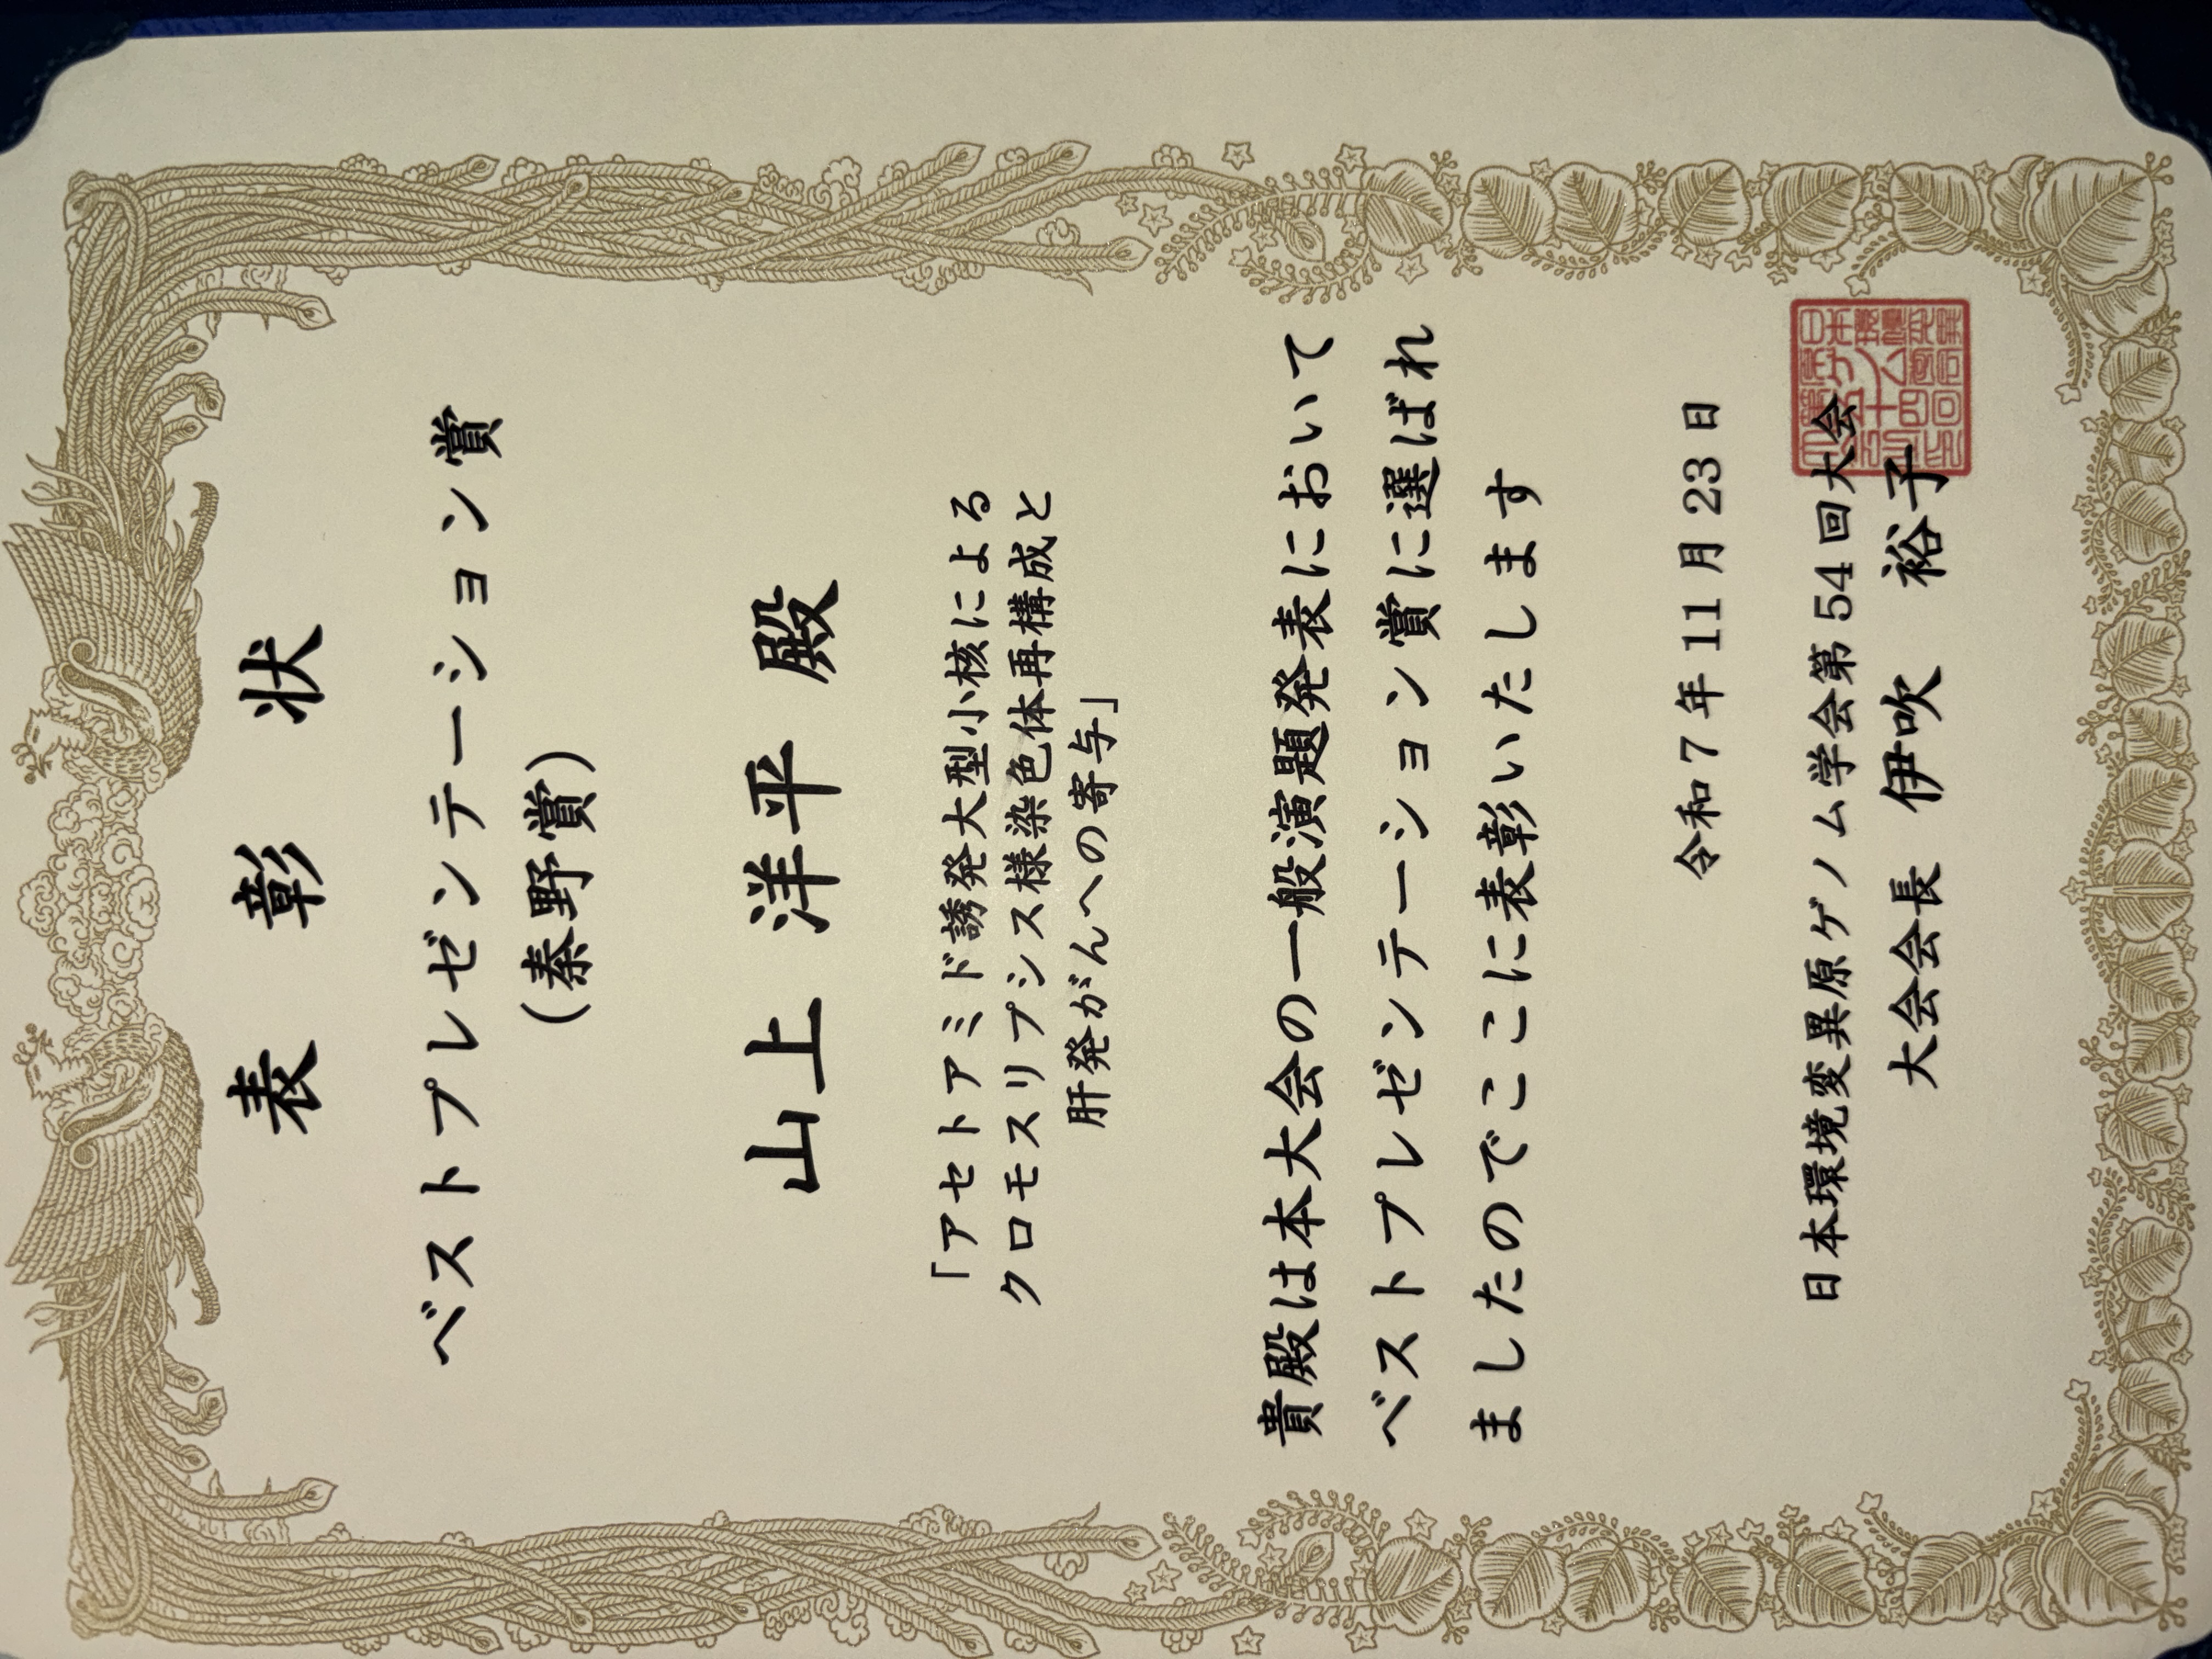 表彰状
ベストプレゼンテーション賞
（秦野賞）
山上 洋平 殿
「アセトアミド誘発大型小核による
クロモスリプシス様染色体再構成と
肝発がんへの寄与」
貴殿は本大会の一般演題発表において
ベストプレゼンテーション賞に選ばれ
ましたのでここに表彰いたします
令和7年11月23日
日本環境変異原ゲノム学会第54回大会
大会会長 伊吹 裕子